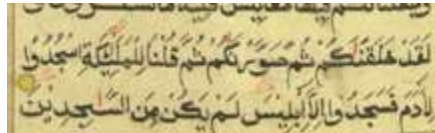 لَقَدْ خَلَقْنَاكُمْ ثُمَّ صَوَّرْنَاكُمْ ثُمَّ قُلْنَا لِلْمَلٰٓئِكَةِ اسْجُدُوا
لِاٰدَمَ فَسَجَدُوا اِلَّا اِبْلِيسَ لَمْ يَكُنْ مِنَ السَّاجِدِينَ